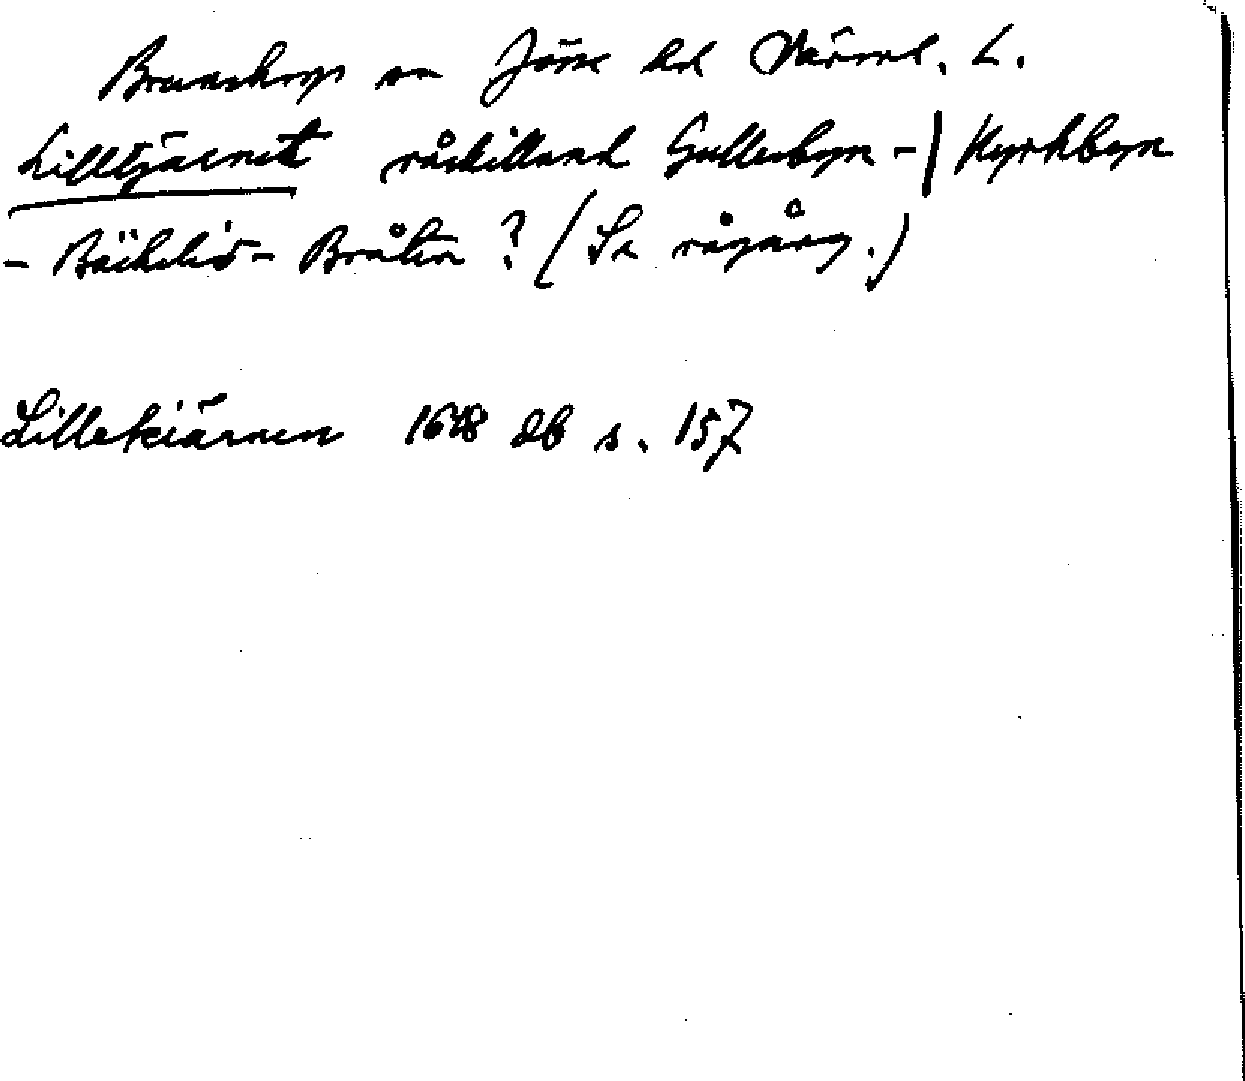 Brunskogs sn Jösse hd Värml. L.
Lilltjärnet råskilland Gullerbyn -| Kyrkbyn
- Bäckelid - Bråten ? (Se rågång.)
Lillekiärnen 1648 db s. 157